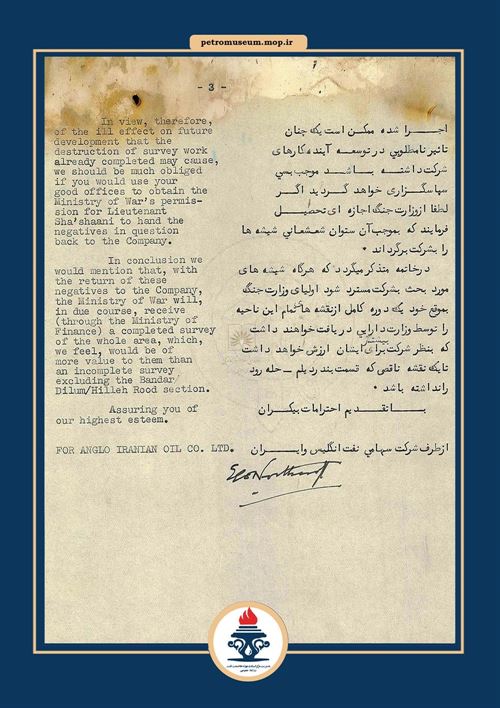 petromuseum.mop.ir
- 3 -
In view, therefore,
of the ill effect on future
development that the
destruction of survey work
already completed may cause,
we should be much obliged
if you would use your
good offices to obtain the
Ministry of War's permis-
sion for Lieutenant
Sha'shaani to hand the
negatives in question
back to the Company.
In conclusion we
would mention that, with
the return of these
negatives to the Company,
the Ministry of War will,
in due course, receive
(through the Ministry of
Finance) a completed survey
of the whole area, which,
we feel, would be of
more value to them than
an incomplete survey
excluding the Bandar
Dilum/Hilleh Rood section.
Assuring you of
our highest esteem.
FOR ANGLO IRANIAN OIL CO. LTD.
اجرا شده ممکن است یک چنان
تاثیر نامطلوبی در توسعه آینده کارهای
شرکت داشته باشد موجب بسی
سپاسگزاری خواهد گردید اگر
لطفا از وزارت جنگ اجازه ای تحصیل
فرمایند که بموجب آن ستوان شعشعانی شیشه ها
را بشرکت برگرداند .
در خاتمه متذکر میگردد که هرگاه شیشه های
مورد بحث بشرکت مسترد شود اولیای وزارت جنگ
بموقع خود یک دوره کامل از نقشه های تمام این ناحیه
را توسط وزارت دارایی دریافت خواهند داشت
که بنظر شرکت برای ایشان بیشتر ارزش خواهد داشت
تا یک نقشه ناقصی که قسمت بندر دیلم – حله رود
را نداشته باشد .
با تقدیم احترامات بیکران
از طرف شرکت سهامی نفت انگلیس و ایران